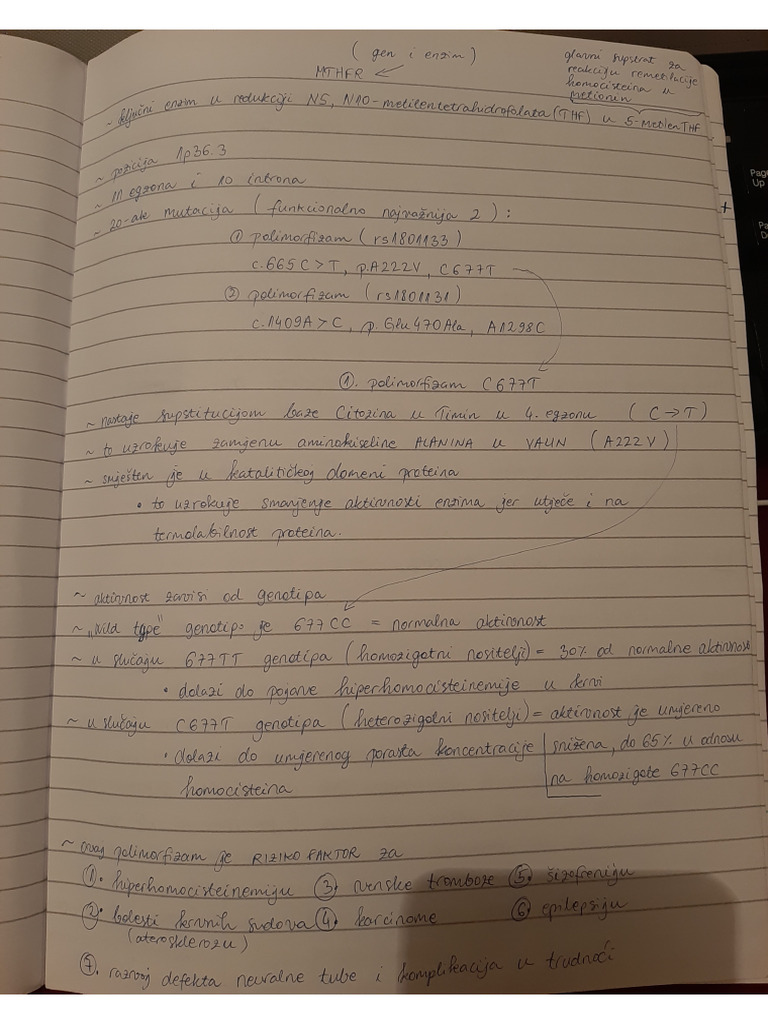 ( gen i enzim)
MTHFR
glavni supstrat za
reakciju remetilacije
homocisteina u
metionin
~ ključni enzim u redukciji N5, N10-metilentetrahidrofolata (THF) u 5-metilenTHF
~ pozicija 1p36.3
~ 11 egzona i 10 introna
~ 20-ak mutacija ( funkcionalno najvažnija 2 ) :
① polimorfizam ( rs1801133)
c.665 C > T, p.A222V, C677T
② polimorfizam ( rs1801131)
c.1409A > C, p. Glu470Ala, A1298C
①. polimorfizam C677T
~ nastaje supstitucijom baze Citozina u Timin u 4. egzonu ( C → T)
~ to uzrokuje zamjenu aminokiseline ALANINA u VALIN ( A222 V )
~ smješten je u katalitičkog domeni proteina
• to uzrokuje smanjenje aktivnosti enzima jer utječe i na
termolabilnost proteina.
~ aktivnost zavisi od genotipa
~ „Wild type" genotip je 677 CC = normalna aktivnost
~ u slučaju 677TT genotipa ( homozigotni nositelji) = 30% od normalne aktivnost
• dolazi do pojave hiperhomocisteinemije u krvi
~ u slučaju C677T genotipa (heterozigotni nositelji) = aktivnost je umjereno
snižena, do 65% u odnosu
na homozigote 677CC
• dolazi do umjerenog porasta koncentracije
homocisteina
~ ovaj polimorfizam je RIZIKO FAKTOR za
①. hiperhomocisteinemiju ③ venske tromboze ⑤. šizofreniju
②. bolesti krvnih sudova ④ karcinome ⑥ epilepsiju
(aterosklerozu)
⑦. razvoj defekta neuralne tube i komplikacija u trudnoći
Page
Up
+